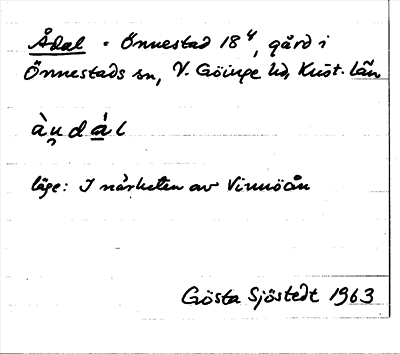 Ådal - Önnestad 18⁴, gård i
Önnestads sn, V. Göinge hd, Krist. län
àu̯dál
läge: I närheten av Vinnöån
Gösta Sjöstedt 1963